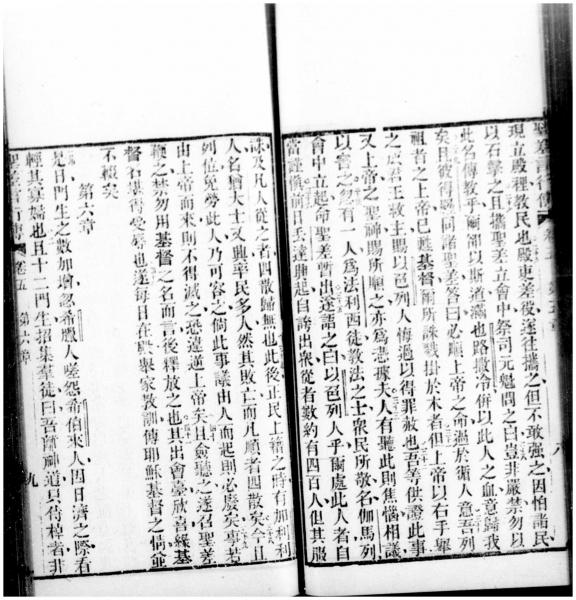 聖差言行傳 卷五 第五章 八
現立殿裡教民也殿吏差役遂往攜之但不敢強之因怕諸民
以石擊之且攜聖差立會中祭司元魁問之曰豈非嚴禁勿以
此名傳教乎爾卻以斯道滿也路撒冷併以此人之血意歸我
矣且彼得羅同諸聖差答曰必順上帝之命過於循人意吾列
祖者之上帝已甦基督爾所誅戮掛於木者但上帝以右手舉
之成君王救主賜以色列人悔過以得罪赦也吾等供證此事
又上帝之聖神賜所順之亦為憑據夫人有聽此則焦惱相議
以害之忽有一人為法利西徒教法之士眾民所敬名伽馬列
會中立起命聖差暫出遂語之曰以色列人乎爾處此人者自
當謹慎前日丟達肆起自誇出眾從者數約有四百人但其服
誅及凡人從之者四散歸無也此後正民上籍之時有加利利
人名猶大士又興率民多人然其敗亡而凡順者四散矣今且
列位免勞此人乃可容之倘此事議由人而起則必廢矣事若
由上帝而來則不得滅之恐違逆上帝矣且僉聽之遂召聖差
鞭之禁勿用基督之名而言後釋放之也其出會臺欣喜緣基
督名堪得受辱也遂每日在殿舉家教訓傳耶穌基督之情並
不輟矣
第六章
是日門生之數加增忽希臘人嗟怨希伯來人因日濟之際看
輕其寡婦也且十二門生招集羣徒曰吾儕神道具倚棹者非
聖差言行傳 卷五 第六章 九